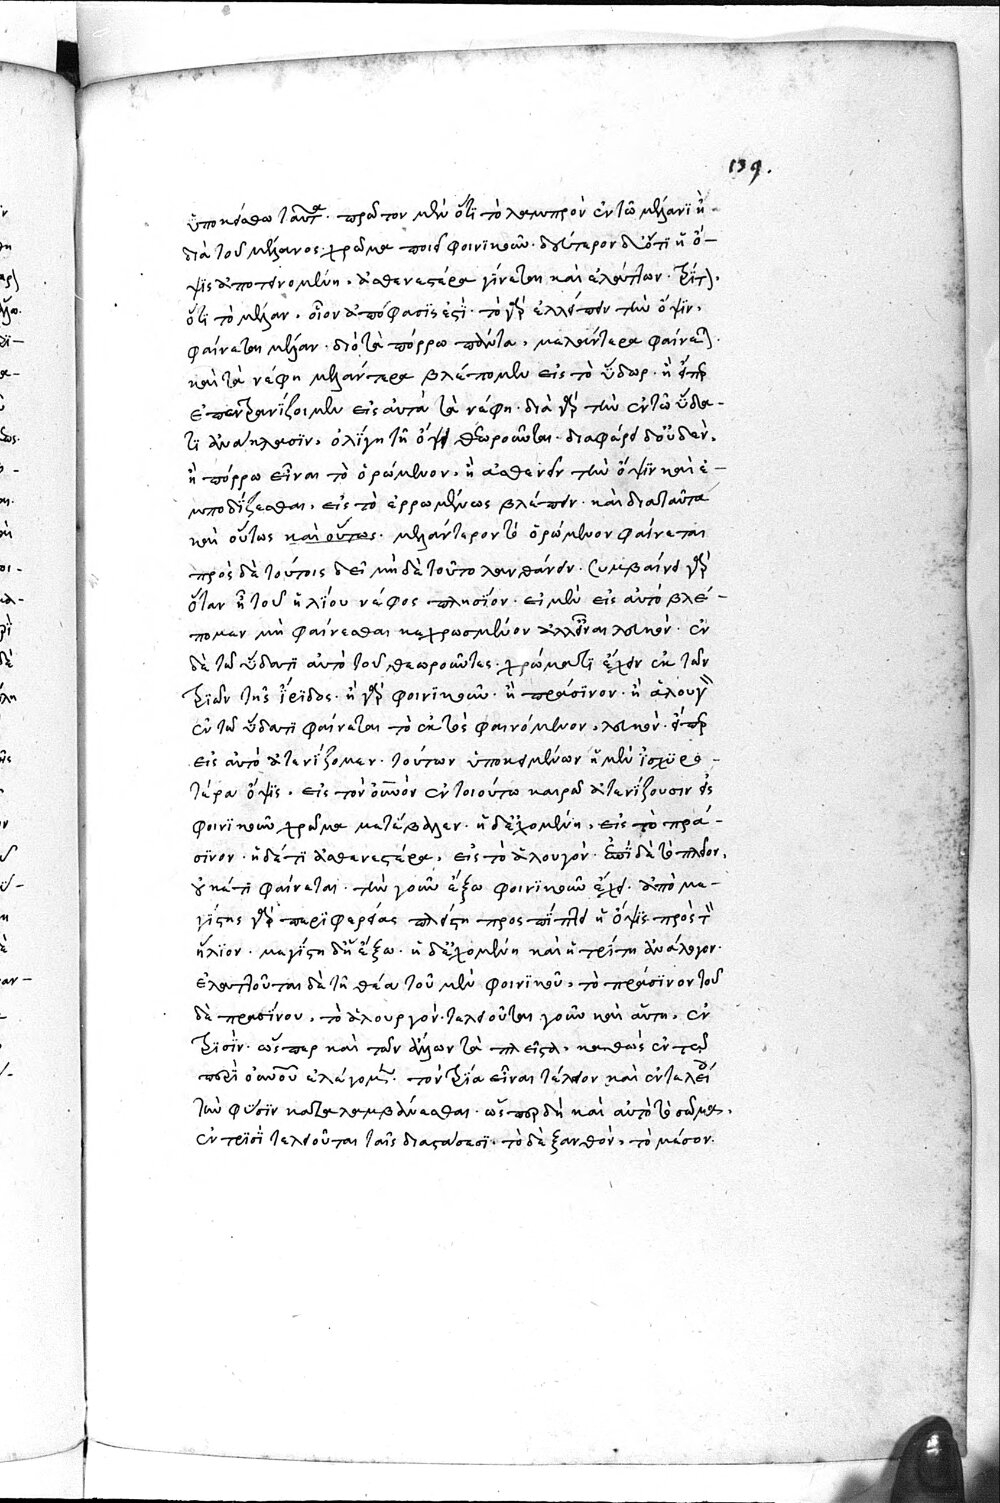 139.
ὑποκείσθω ταῦτα. πρῶτον μὲν ὅτι τὸ λαμπρὸν ἐν τῶ μέλανι ἢ
διὰ τοῦ μέλανος. χρῶμα ποιεῖ φοινικοῦν. δεύτερον δ' ὅτι ἡ ὄ-
ψις ἀποτεινομένη, ἀσθενεστέρα γίνεται καὶ ἐλάττων. τρίτον,
ὅτι τὸ μέλαν, οἷον ἀπόφασίς ἐστι. τὸ γὰρ ἐλλείπειν τὴν ὄψιν,
φαίνεται μέλαν. διὸ τὰ πόρρω πάντα, μελάντερα φαίνεται.
καὶ τὰ νέφη μελάντερα βλέπομεν εἰς τὸ ὕδωρ. ἢ εἴπερ
ἐπενατενίζοιμεν εἰς αὐτὰ τὰ νέφη. διὰ γὰρ τὴν ἐν τῶ ὕδα-
τι ἀνάκλασιν, ὀλίγη τῆ ὄψει θεωροῦνται. διαφέρει δ' οὐδὲν,
ἢ πόρρω εἶναι τὸ ὁρώμενον, ἢ ἀσθενεῖν τὴν ὄψιν καὶ ἐ-
μποδίζεσθαι, εἰς τὸ ἐρρωμένως βλέπειν. καὶ διαταῦτα
καὶ οὕτως καὶ οὕτως. μελάντερον τὸ ὁρώμενον φαίνεται
πρὸς δὲ τούτοις δεῖ μὴ δὲ τοῦτο λανθάνειν. συμβαίνει γὰρ
ὅταν ἦ τοῦ ἡλίου νέφος πλησίον. εἰ μὲν εἰς αὐτὸ βλέ-
πομεν μὴ φαίνεσθαι κεχρωσμένον ἀλλ' εἶναι λευκόν. ἐν
δὲ τῶ ὕδατι αὐτὸ τοῦ θεωροῦντες. χρώματι ἔχειν ἐκ τῶν
τριῶν τῆς ἴριδος. ἢ γὰρ φοινικοῦν. ἢ πράσινον. ἢ ἁλουργὸν
ἐν τῶ ὕδατι φαίνεται τὸ ἐκτὸς φαινόμενον, λευκὸν. εἴπερ
εἰς αὐτὸ ἀτενίζομεν. τούτων ὑποκειμένων ἡ μὲν ἰσχυρο-
τέρα ὄψις. εἰς τὸν οὐρανὸν ἐν τοιούτω καιρῶ ἀτενίζουσιν εἰς
φοινικοῦν χρῶμα μετέβαλεν. ἡ δ' ἐχομένη, εἰς τὸ πρά-
σινον. ἡ δέ τι ἀσθενεστέρα, εἰς τὸ ἁλουργόν. ἐπὶ δὲ τὸ πλεῖον,
οὐκέτι φαίνεται. τὴν γοῦν ἔξω φοινικοῦν ἔχει. ἀπὸ με-
γίστης γὰρ περιφερείας πλείστη προσπίπτει ἡ ὄψις πρὸς τὸν
ἥλιον. μεγίστη δ' ἡ ἔξω. ἡ δ' ἐχομένη καὶ ἡ τρίτη ἀνάλογον.
ἐλαττοῦται δὲ τῆ θέα τοῦ μὲν φοινικοῦ, τὸ πράσινον τοῦ
δὲ πρασίνου, τὸ ἁλουργόν. τελειοῦται γοῦν καὶ αὕτη, ἐν
τρισὶν. ὥσπερ καὶ τῶν ἄλλων τὰ πλεῖστα, καθὼς ἐν τῶ
περὶ οὐρανοῦ ἐλέγομεν. τὸν τρία εἶναι τέλειον καὶ ἐντελεῖ
τὴν φύσιν καταλαμβάνεσθαι. ὥσπερ δὴ καὶ αὐτὸ τὸ σῶμα,
ἐν τρισὶ τελειοῦται ταῖς διαστάσεσι. τὸ δὲ ξανθὸν, τὸ μέσον.